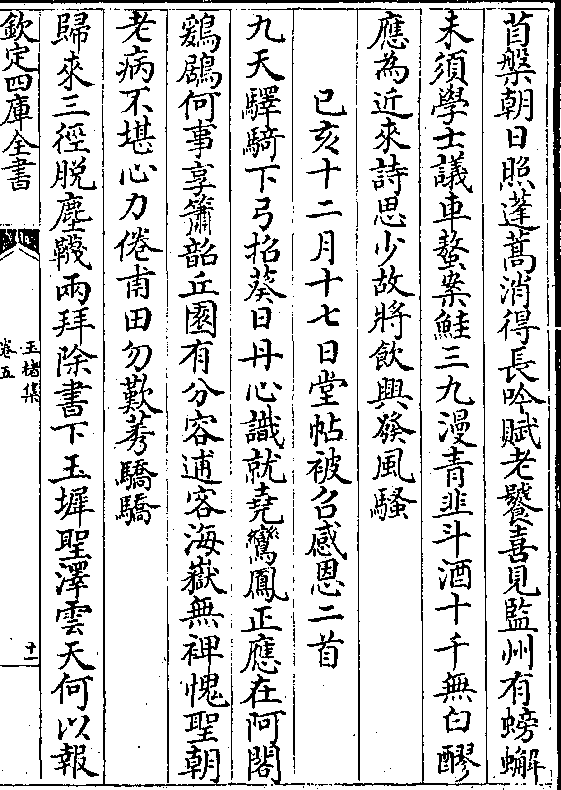 苜槃朝日照蓬蒿消得長吟賦老饕喜見監州有螃蠏
未須學士議車螯案鮭三九漫青韭斗酒十千無白醪
應為近來詩思少故將飲興發風騷
已亥十二月十七日堂帖被召感恩二首
九天驛騎下弓招葵日丹心識就堯鸞鳳正應在阿閣
鷄鶋何事享簫韶丘園有分容逋客海嶽無裨愧聖朝
老病不堪心力倦甫田勿歎莠驕驕
歸來三徑脱塵鞿兩拜除書下玉墀聖澤雲天何以報
欽定四庫全書
玉楮集
卷五
十一